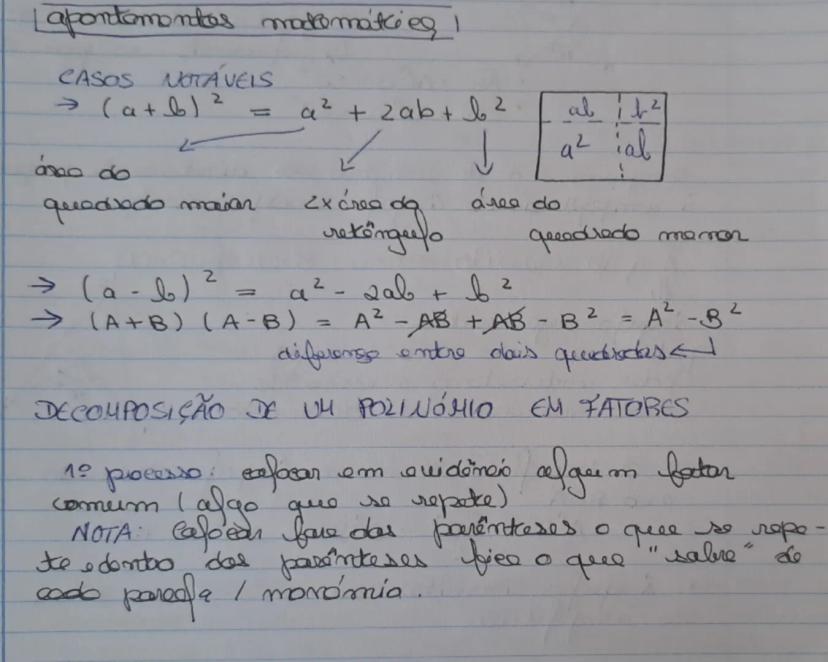 apontamentos matemática
CASOS NOTÁVEIS
→ (a + b)² = a² + 2ab + b²
ab b²
a² ab
área do quadrado maior
2x área do retângulo
área do quadrado menor
→ (a - b)² = a² - 2ab + b²
→ (A+B) (A-B) = A² - AB + AB - B² = A² - B²
diferença entre dois quadrados ↵
DECOMPOSIÇÃO DE UM POLINÓMIO EM FATORES
1º processo: colocar em evidência algum fator
comum (algo que se repete)
NOTA: colocar fora dos parênteses o que se repe-
te e dentro dos parênteses fica o que "sobra" de
cada parcela / monómio.